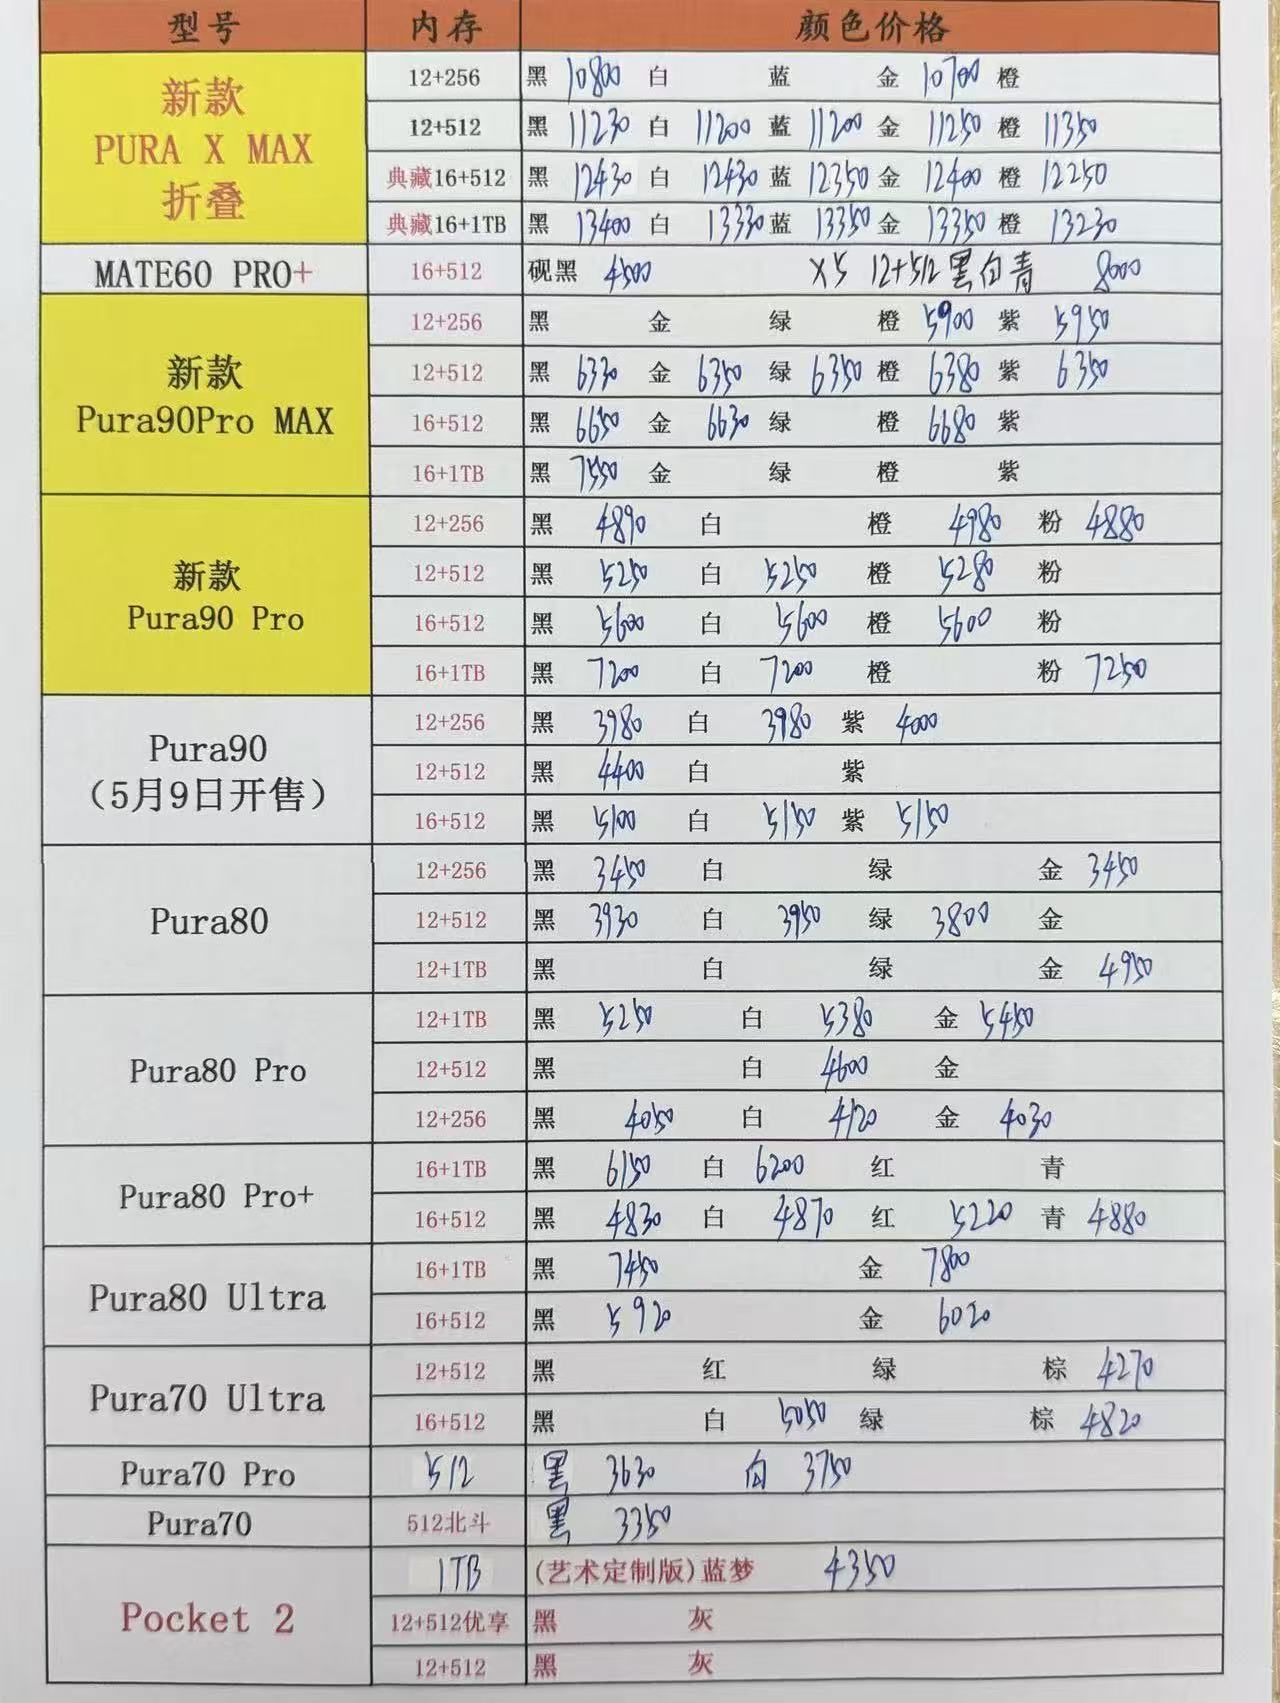 型号 内存 颜色价格
新款 PURA X MAX 折叠
12+256 黑 10800 白 蓝 金 10700 橙
12+512 黑 11230 白 11200 蓝 11200 金 11250 橙 11350
典藏16+512 黑 12430 白 12430 蓝 12350 金 12400 橙 12250
典藏16+1TB 黑 13400 白 13330 蓝 13350 金 13350 橙 13230
MATE60 PRO+ 16+512 砚黑 4500 X5 12+512 黑白青 8000
新款 Pura90Pro MAX
12+256 黑 金 绿 橙 5900 紫 5950
12+512 黑 6330 金 6350 绿 6350 橙 6380 紫 6350
16+512 黑 6650 金 6630 绿 橙 6680 紫
16+1TB 黑 7550 金 绿 橙 紫
新款 Pura90 Pro
12+256 黑 4890 白 橙 4980 粉 4880
12+512 黑 5250 白 5250 橙 5280 粉
16+512 黑 5600 白 5600 橙 5600 粉
16+1TB 黑 7200 白 7200 橙 粉 7250
Pura90 (5月9日开售)
12+256 黑 3980 白 3980 紫 4000
12+512 黑 4400 白 紫
16+512 黑 5100 白 5150 紫 5150
Pura80
12+256 黑 3450 白 绿 金 3450
12+512 黑 3930 白 3950 绿 3800 金
12+1TB 黑 白 绿 金 4950
Pura80 Pro
12+1TB 黑 5250 白 5380 金 5450
12+512 黑 白 4600 金
12+256 黑 4050 白 4120 金 4030
Pura80 Pro+
16+1TB 黑 6150 白 6200 红 青
16+512 黑 4830 白 4870 红 5220 青 4880
Pura80 Ultra
16+1TB 黑 7450 金 7800
16+512 黑 5920 金 6020
Pura70 Ultra
12+512 黑 红 绿 棕 4270
16+512 黑 白 5050 绿 棕 4820
Pura70 Pro 512 黑 3630 白 3750
Pura70 512北斗 黑 3350
Pocket 2
1TB (艺术定制版)蓝梦 4350
12+512优享 黑 灰
12+512 黑 灰